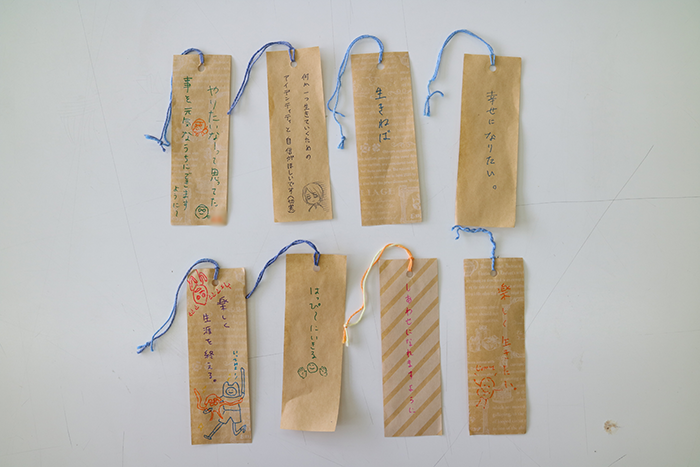 やりたいなーって思ってた
事を元気なうちにできます
ように!
何か一つ生きていくための
アイデンティティと自信がほしいです
生きねば
幸せになりたい。
楽しく
生涯を終える。
はっぴ〜にいきる
しあわせになれますように
楽しく生きたい。